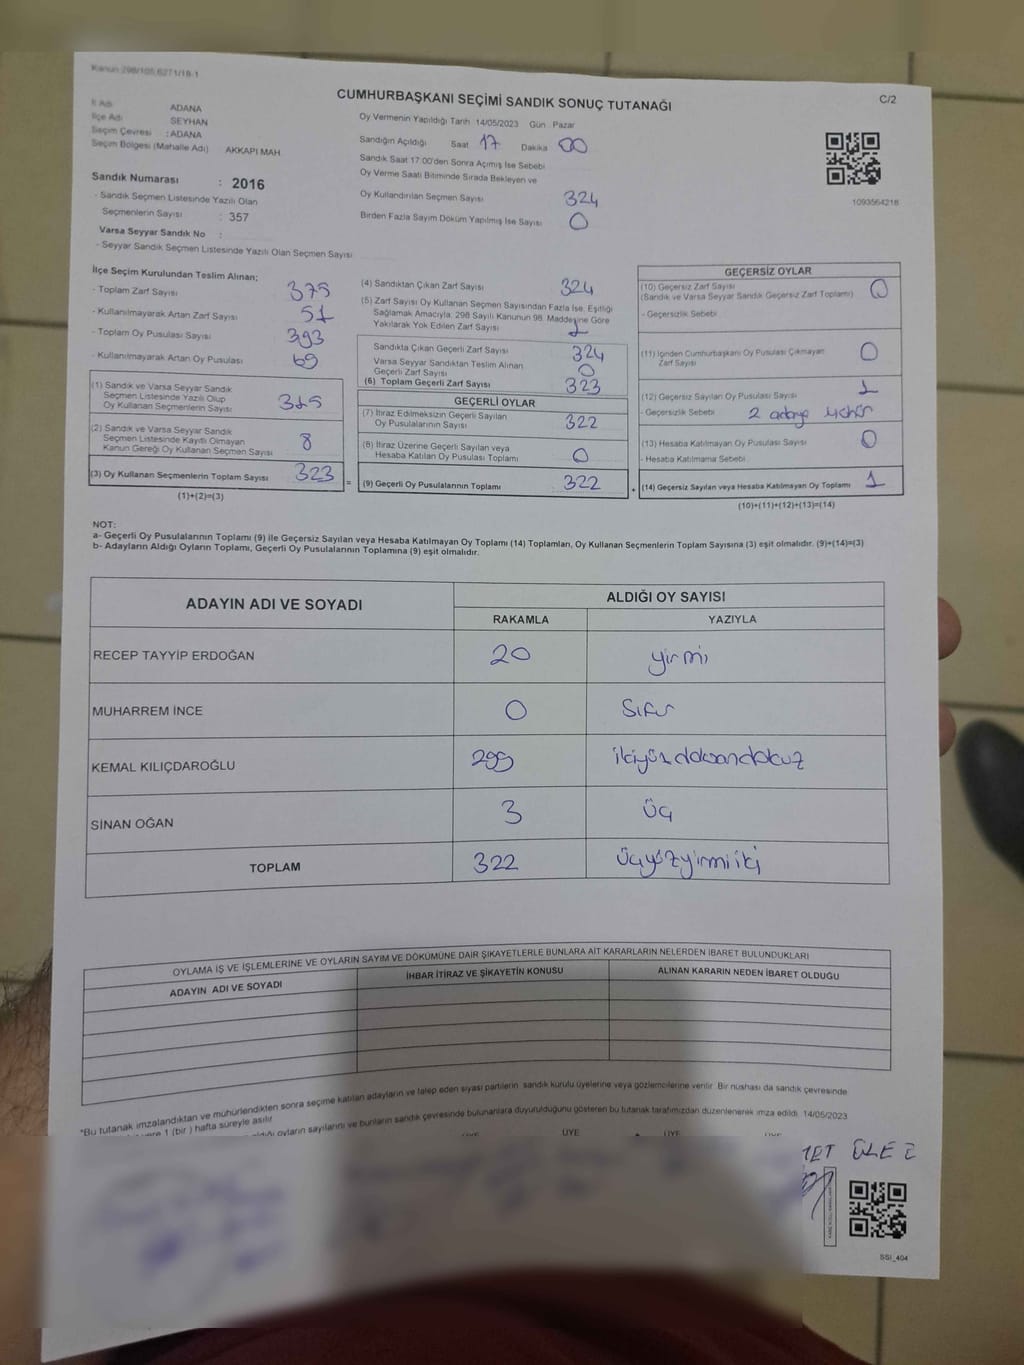 Kanun 298/105,6271/18-1
CUMHURBAŞKANI SEÇİMİ SANDIK SONUÇ TUTANAĞI
C/2
İl Adı ADANA
İlçe Adı SEYHAN
Seçim Çevresi : ADANA
Seçim Bölgesi (Mahalle Adı) AKKAPI MAH
Sandık Numarası : 2016
- Sandık Seçmen Listesinde Yazılı Olan
Seçmenlerin Sayısı : 357
Varsa Seyyar Sandık No :
- Seyyar Sandık Seçmen Listesinde Yazılı Olan Seçmen Sayısı
Oy Vermenin Yapıldığı Tarih 14/05/2023 Gün Pazar
Sandığın Açıldığı Saat 17 Dakika 00
Sandık Saat 17:00'den Sonra Açılmış İse Sebebi
Oy Verme Saati Bitiminde Sırada Bekleyen ve
Oy Kullandırılan Seçmen Sayısı 324
Birden Fazla Sayım Döküm Yapılmış İse Sayısı 0
1093564218
İlçe Seçim Kurulundan Teslim Alınan;
- Toplam Zarf Sayısı 375
- Kullanılmayarak Artan Zarf Sayısı 51
- Toplam Oy Pusulası Sayısı 393
- Kullanılmayarak Artan Oy Pusulası 69
(1) Sandık ve Varsa Seyyar Sandık
Seçmen Listesinde Yazılı Olup
Oy Kullanan Seçmenlerin Sayısı 315
(2) Sandık ve Varsa Seyyar Sandık
Seçmen Listesinde Kayıtlı Olmayan
Kanun Gereği Oy Kullanan Seçmen Sayısı 8
(3) Oy Kullanan Seçmenlerin Toplam Sayısı 323
(1)+(2)=(3)
(4) Sandıktan Çıkan Zarf Sayısı 324
(5) Zarf Sayısı Oy Kullanan Seçmen Sayısından Fazla İse, Eşitliği
Sağlamak Amacıyla, 298 Sayılı Kanunun 98. Maddesine Göre
Yakılarak Yok Edilen Zarf Sayısı 1
Sandıkta Çıkan Geçerli Zarf Sayısı 324
Varsa Seyyar Sandıktan Teslim Alınan
Geçerli Zarf Sayısı 0
(6) Toplam Geçerli Zarf Sayısı 323
GEÇERLİ OYLAR
(7) İtiraz Edilmeksizin Geçerli Sayılan
Oy Pusulalarının Sayısı 322
(8) İtiraz Üzerine Geçerli Sayılan veya
Hesaba Katılan Oy Pusulası Toplamı 0
= (9) Geçerli Oy Pusulalarının Toplamı 322
GEÇERSİZ OYLAR
(10) Geçersiz Zarf Sayısı 0
(Sandık ve Varsa Seyyar Sandık Geçersiz Zarf Toplamı)
- Geçersizlik Sebebi
(11) İçinden Cumhurbaşkanı Oy Pusulası Çıkmayan 0
Zarf Sayısı
(12) Geçersiz Sayılan Oy Pusulası Sayısı 1
- Geçersizlik Sebebi 2 adaya
(13) Hesaba Katılmayan Oy Pusulası Sayısı 0
- Hesaba Katılmama Sebebi
+ (14) Geçersiz Sayılan veya Hesaba Katılmayan Oy Toplamı 1
(10)+(11)+(12)+(13)=(14)
NOT:
a- Geçerli Oy Pusulalarının Toplamı (9) ile Geçersiz Sayılan veya Hesaba Katılmayan Oy Toplamı (14) Toplamları, Oy Kullanan Seçmenlerin Toplam Sayısına (3) eşit olmalıdır. (9)+(14)=(3)
b- Adayların Aldığı Oyların Toplamı, Geçerli Oy Pusulalarının Toplamına (9) eşit olmalıdır.
ADAYIN ADI VE SOYADI
ALDIĞI OY SAYISI
RAKAMLA YAZIYLA
RECEP TAYYİP ERDOĞAN 20 yirmi
MUHARREM İNCE 0 Sıfır
KEMAL KILIÇDAROĞLU 299 ikiyüzdoksandokuz
SİNAN OĞAN 3 üç
TOPLAM 322 üçyüzyirmiiki
OYLAMA İŞ VE İŞLEMLERİNE VE OYLARIN SAYIM VE DÖKÜMÜNE DAİR ŞİKAYETLERLE BUNLARA AİT KARARLARIN NELERDEN İBARET BULUNDUKLARI
ADAYIN ADI VE SOYADI İHBAR İTİRAZ VE ŞİKAYETİN KONUSU ALINAN KARARIN NEDEN İBARET OLDUĞU
*Bu tutanak imzalandıktan ve mühürlendikten sonra seçime katılan adayların ve talep eden siyasi partilerin sandık kurulu üyelerine veya gözlemcilerine verilir. Bir nüshası da sandık çevresinde
1 (bir) hafta süreyle asılır
oyların sayılarını ve bunların sandık çevresinde bulunanlara duyurulduğunu gösteren bu tutanak tarafımızdan düzenlenerek imza edildi. 14/05/2023
ÜYE ÜYE ÜYE ÜYE
SSI_404